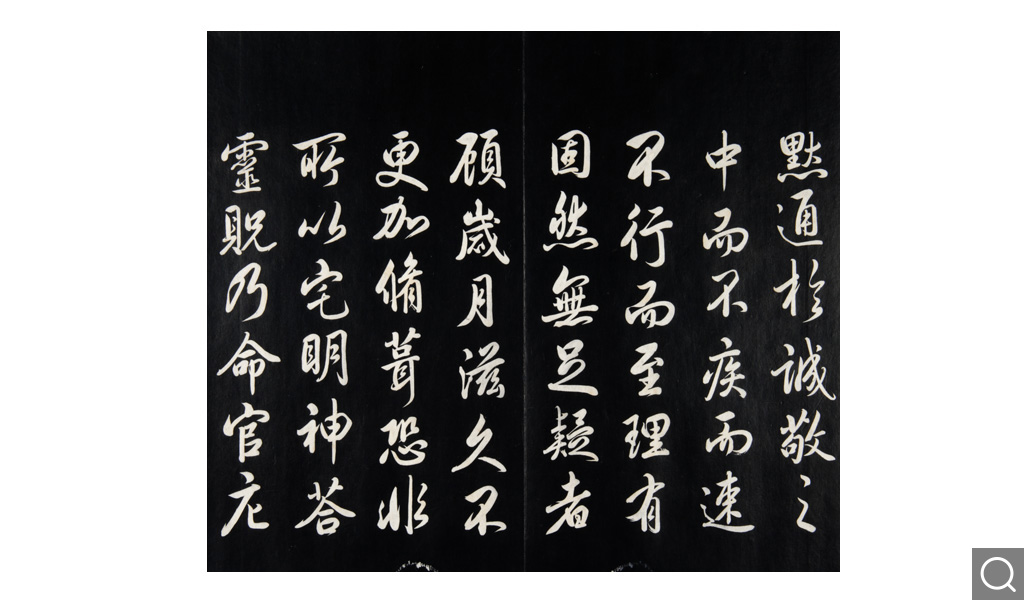 黙通於誠敬之
中而不疾而速
不行而至理有
固然無足疑者
顧歲月滋久不
更加脩葺恐非
所以宅明神荅
靈貺乃命官庀